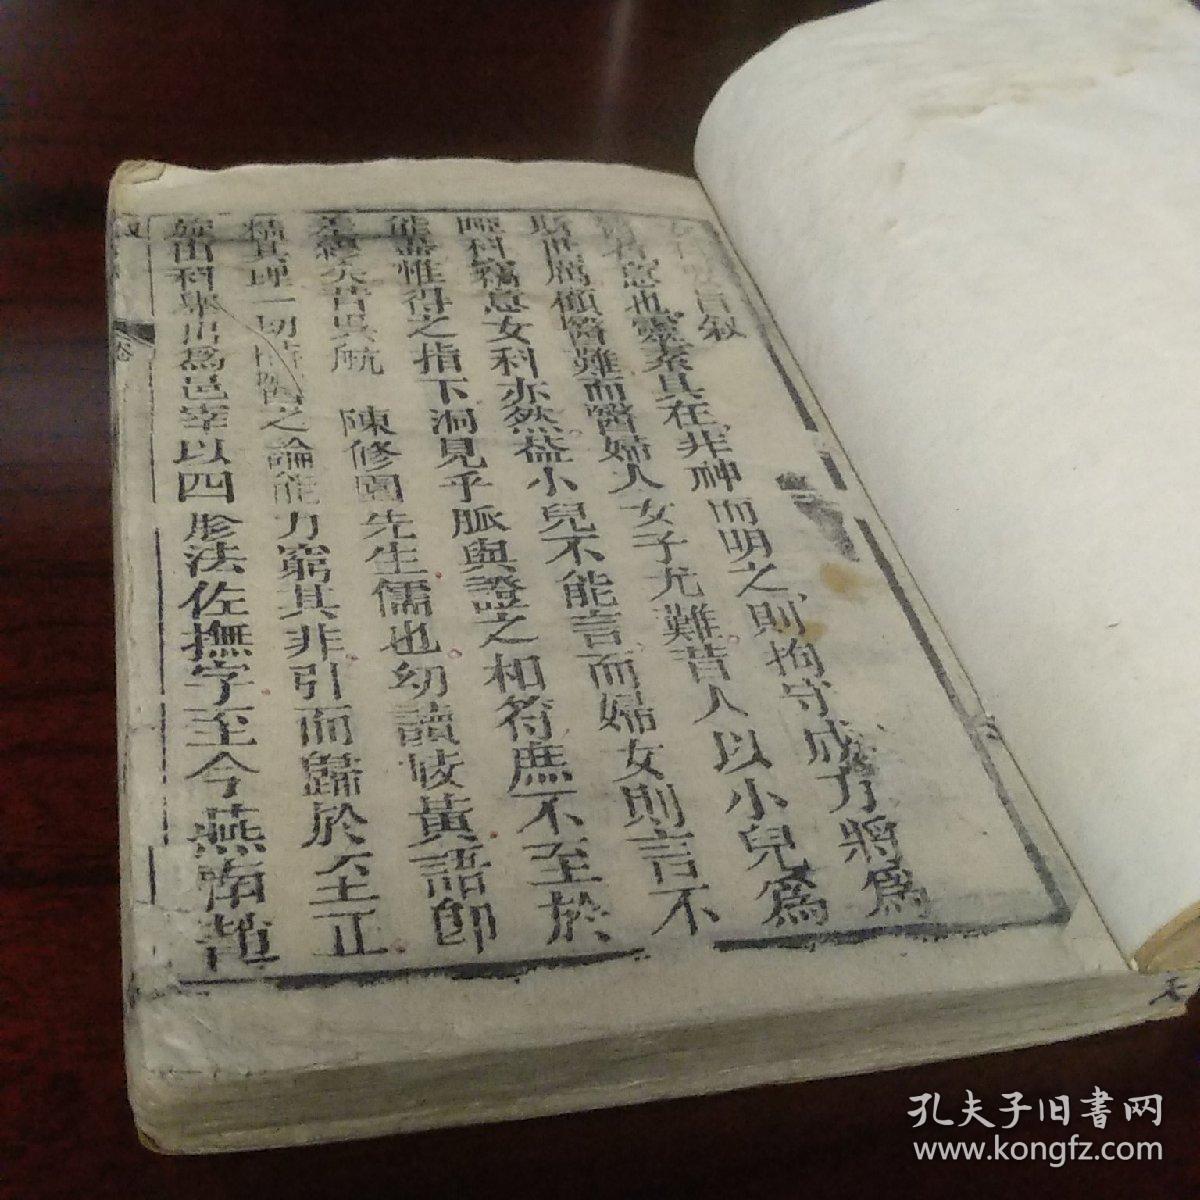 女科要旨敘
醫者意也靈素具在非神而明之則拘守成方將爲
斯世厲顧醫難而醫婦人女子尤難昔人以小兒爲
啞科竊意女科亦然葢小兒不能言而婦女則言不
能盡惟得之指下洞見乎脈與證之相符庶不至於
差繆矣昔吳航 陳修園先生儒也幼讀岐黃語卽
精其理一切時醫之論能力窮其非引而歸於至正
旋由科舉出爲邑宰以四胗法佐撫字至今燕南趙
敘
卷
孔夫子旧書网
www.kongfz.com